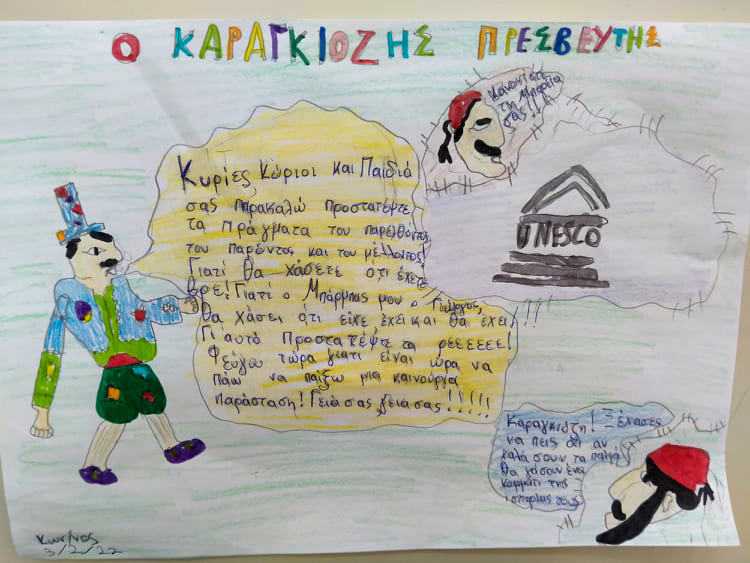 Ο ΚΑΡΑΓΚΙΟΖΗΣ ΠΡΕΣΒΕΥΤΗΣ
σας!!!
UNESCO
Κυρίες Κύριοι Και Παιδιά
σας παρακαλώ προστατέψτε
τα πράγματα του παρελθόντος
του παρώντος και του μέλλοντος!
Γιατί θα χάσετε ότι έχετε
βρε! Γιατί ο Μπάρμπας μου ο Γιώργος,
θα χάσει ότι είχε έχει και θα έχει!!!
Γι'αυτό Προστατέψτε τα ρεεεεεε!
Φεύγω τώρα γιατί είναι ώρα να
πάω να παίξω μια καινούργια
παράσταση! Γειά σας, γειά σας!!!!!
Καραγκιόζη! Ξέχασες
να πεις ότι αν
χαλάσουν τα παλιά
θα χάσουν ένα
κομμάτι της
ιστορίας τους
3/2/22